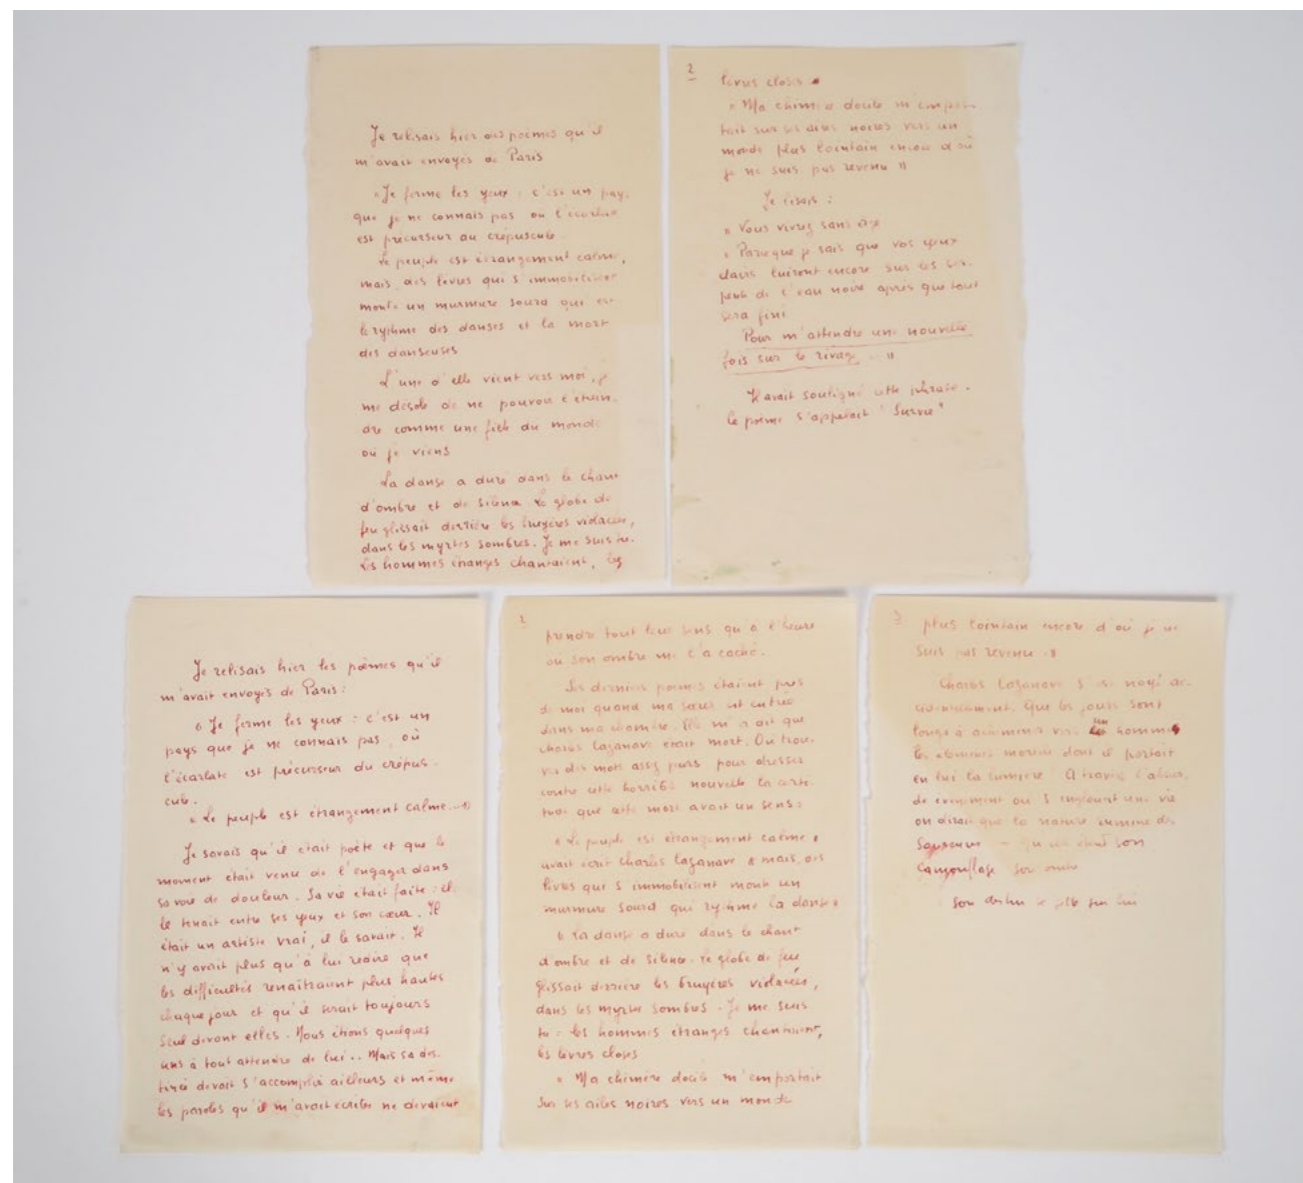 Je relisais hier des poèmes qu'il
m'avait envoyés de Paris
« Je ferme les yeux : c'est un pays
que je ne connais pas où l'écarlate
est précurseur du crépuscule
Le peuple est étrangement calme,
mais des lèvres qui s'immobilisent
monte un murmure sourd qui est
le rythme des danses et la mort
des danseuses
L'une d'elle vient vers moi, je
me désole de ne pouvoir l'étein-
dre comme une fille du monde
où je viens
La danse a duré dans le chant
d'ombre et de silence Le globe de
feu glissait derrière les bruyères violacées,
dans les myrtes sombres. Je me suis tu.
Les hommes étranges chantaient, les
2
lèvres closes
« Ma chimère docile m'empor-
tait sur ses ailes noires vers un
monde plus lointain encore d'où
je ne suis pas revenu »
Je lisais :
« Vous vivrez sans âge
« Parce que je sais que vos yeux
clairs luiront encore sur les ser-
pents de l'eau noire après que tout
sera fini
Pour m'attendre une nouvelle
fois sur le rivage . »
Il avait souligné cette phrase.
Le poème s'appelait "Survie"
Je relisais hier les poèmes qu'il
m'avait envoyés de Paris :
« Je ferme les yeux : c'est un
pays que je ne connais pas, où
l'écarlate est précurseur du crépus-
cule.
« Le peuple est étrangement calme... »
Je savais qu'il était poète et que le
moment était venu de l'engager dans
sa voie de douleur. Sa vie était faite : il
la tenait entre ses yeux et son cœur. Il
était un artiste vrai, il le savait. Il
n'y avait plus qu'à lui redire que
les difficultés renaîtraient plus hautes
chaque jour et qu'il serait toujours
seul devant elles. Nous étions quelques
uns à tout attendre de lui.. Mais sa des-
tinée devait s'accomplir ailleurs et même
les paroles qu'il m'avait écrites ne devaient
2
prendre tout leur sens qu'à l'heure
où son ombre me l'a caché.
Ses derniers poèmes étaient près
de moi quand ma sœur est entrée
dans ma chambre. Elle m'a dit que
Charles Cazanave était mort. Où trou-
ver des mots assez purs pour dresser
contre cette horrible nouvelle la certi-
tude que cette mort avait un sens :
« Le peuple est étrangement calme »
avait écrit Charles Cazanave « mais des
lèvres qui s'immobilisent monte un
murmure sourd qui rythme la danse »
« La danse a duré dans le chant
d'ombre et de silence. Le globe de feu
glissait derrière les bruyères violacées,
dans les myrtes sombres. Je me suis
tu : les hommes étranges chantaient,
les lèvres closes
« Ma chimère docile m'emportait
sur ses ailes noires vers un monde
3
plus lointain encore d'où je ne
suis pas revenu. »
Charles Cazanave s'est noyé ac-
cidentellement. Que les jours sont
longs à acheminer vers un homme
les obscurs dont il portait
en lui la lumière A travers l'absur-
de événement où s'engloutit une vie
on dirait que la nature
Son
Camouflage son ombre
son destin